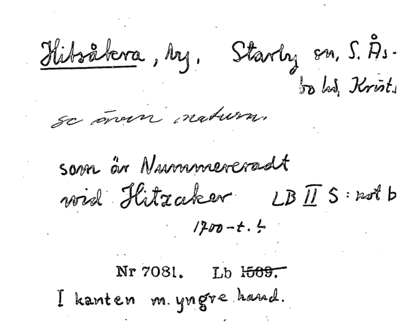 Hitsåkra, by. Starby sn, S. Ås-
bo hd, Krist.
se även naturn.
som är Nummereradt
wid Hitzaker LB II S: not b
1700-t.?
Nr 7081. Lb 1569.
I kanten m. yngre hand.